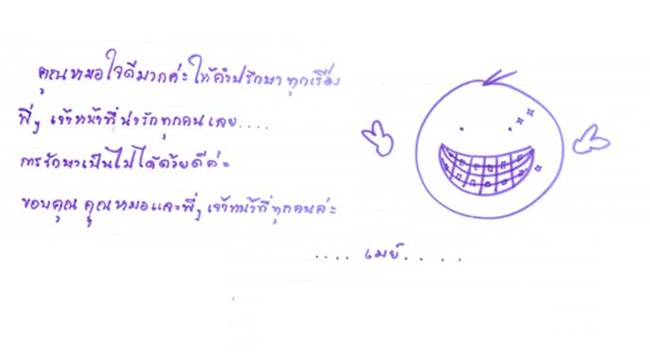 คุณหมอใจดีมากค่ะ ให้คำปรึกษาทุกเรื่อง
พี่ๆ เจ้าหน้าที่น่ารักทุกคนเลย....
การรักษาเป็นไปได้ด้วยดีค่ะ
ขอบคุณ คุณหมอและพี่ๆ เจ้าหน้าที่ทุกคนค่ะ
.... เมย์.....